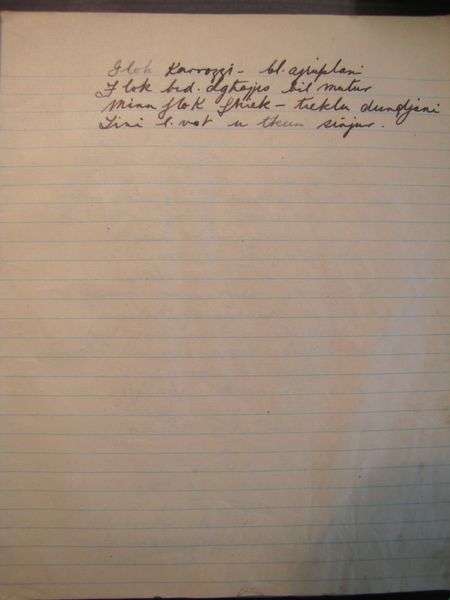 Flok Karrozzi - bl. ajruplani
Flok bid. dghajjes bil mutur
Minn flok Hniek - tieklu dundjani
Tini l. vot u tkun sinjur.